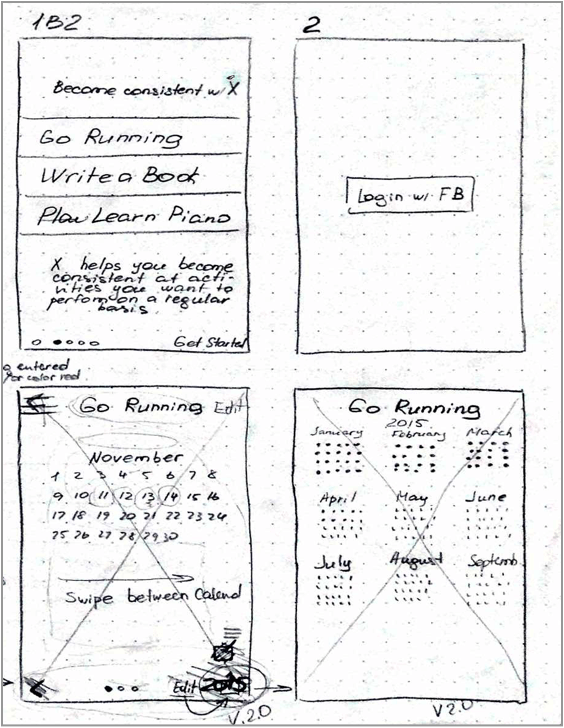 1B2
Become consistent w/ X
Go Running
Write a Book
Play Learn Piano
X helps you become
consistent at acti-
vities you want to
perform on a regular
basis.
Get Started
2
Login w/ FB
entered
or color red
Go Running Edit
November
1 2 3 4 5 6 7 8
9 10 11 12 13 14 15 16
17 18 19 20 21 22 23 24
25 26 27 28 29 30
Swipe between Calend
Edit 2015
V.2.0
Go Running
2015
January February March
April May June
July August Septemb
V2.0